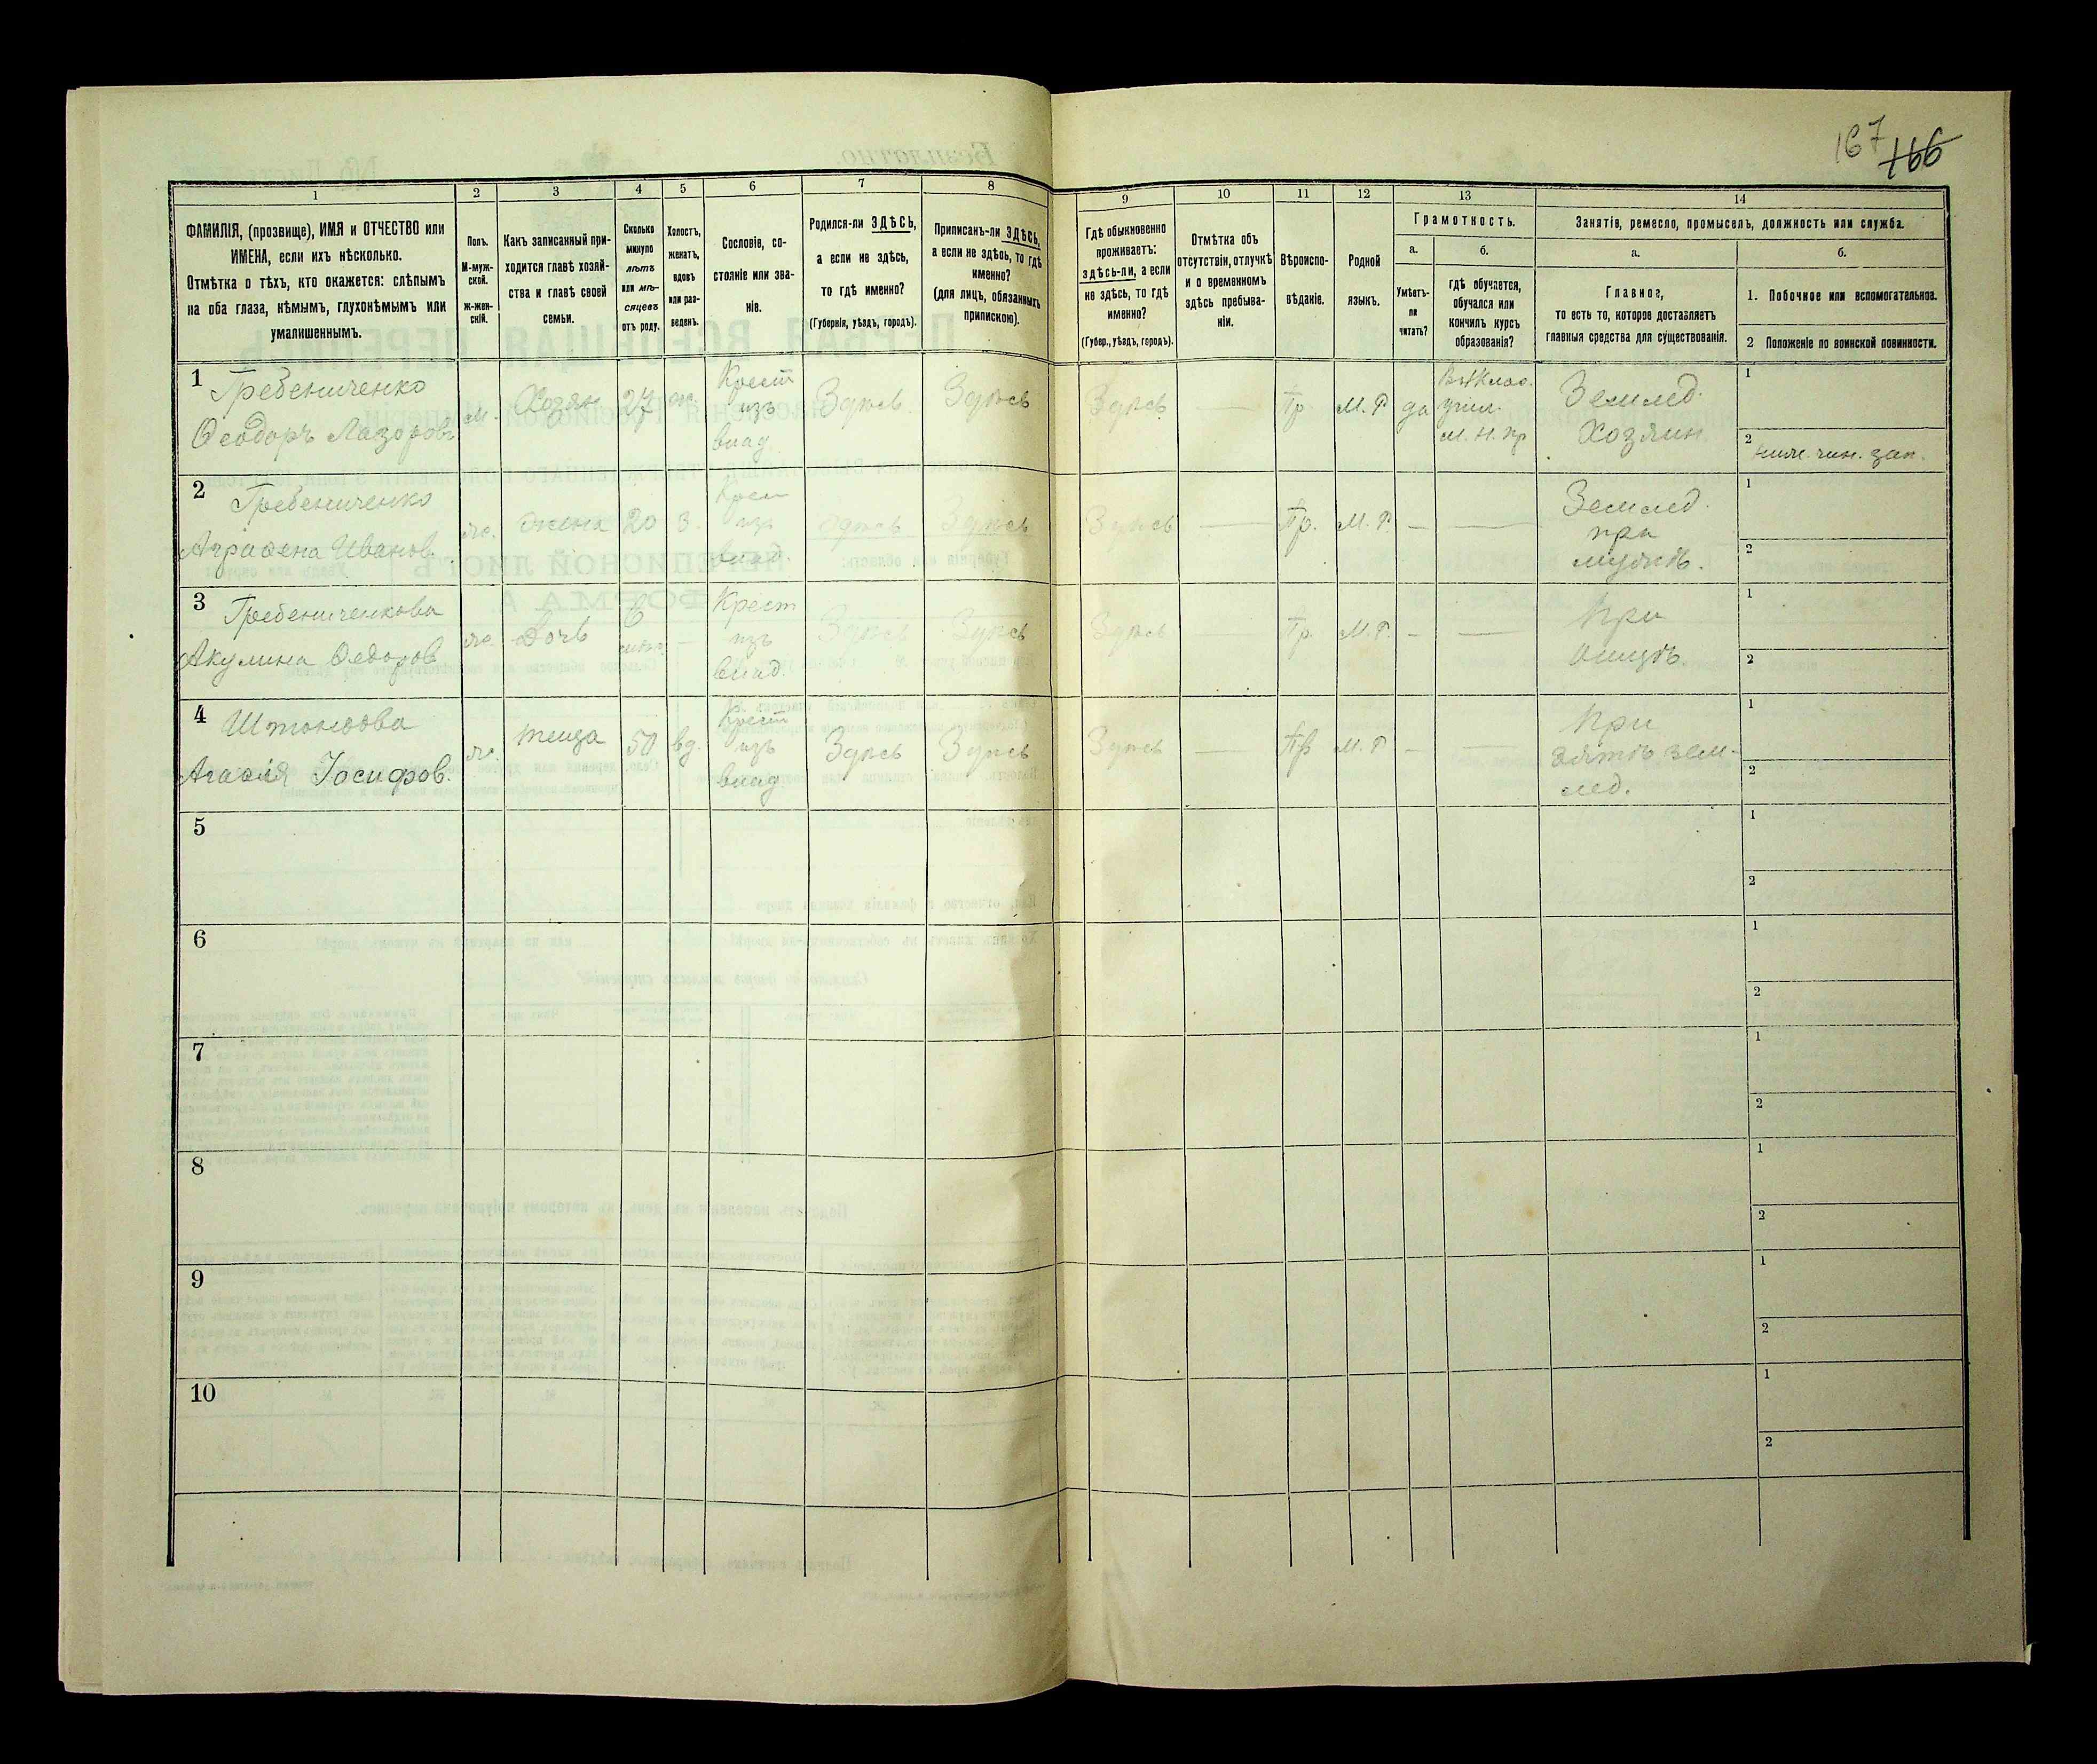 167 166
1
2
3
4
5
6
7
8
9
10
11
12
13
14
ФАМИЛІЯ, (прозвище), ИМЯ и ОТЧЕСТВО или
ИМЕНА, если ихъ нѣсколько.
Отмѣтка о тѣхъ, кто окажется: слѣпымъ
на оба глаза, нѣмымъ, глухонѣмымъ или
умалишеннымъ.
Полъ.
М-муж-
ской.
Ж-жен-
скій.
Какъ записанный при-
ходится главѣ хозяй-
ства и главѣ своей
семьи.
Сколько
минуло
лѣтъ
или мѣ-
сяцевъ
отъ роду.
Холостъ,
женатъ,
вдовъ
или раз-
веденъ.
Сословіе, со-
стояніе или зва-
ніе.
Родился-ли ЗДѢСЬ,
а если не здѣсь,
то гдѣ именно?
(Губернія, уѣздъ, городъ).
Приписанъ-ли ЗДѢСЬ,
а если не здѣсь, то гдѣ
именно?
(для лицъ, обязанныхъ
припискою).
Гдѣ обыкновенно
проживаетъ:
здѣсь-ли, а если
не здѣсь, то гдѣ
именно?
(Губер., уѣздъ, городъ).
Отмѣтка объ
отсутствіи, отлучкѣ
и о временномъ
здѣсь пребыва-
ніи.
Вѣроиспо-
вѣданіе.
Родной
языкъ.
Грамотность.
а.
Умѣетъ-
ли
читать?
б.
гдѣ обучается,
обучался или
кончилъ курсъ
образованія?
Занятія, ремесло, промыселъ, должность или служба.
а.
Главное,
то есть то, которое доставляетъ
главныя средства для существованія.
б.
1. Побочное или вспомогательное.
2 Положеніе по воинской повинности.
1
Гребениченко
Ѳеодоръ Лазоровъ
м.
Хозяин
27
ж.
Крест
изъ
влад.
Здѣсь.
Здѣсь
Здѣсь
—
Пр
М.Р
да
учил.
м. н. пр
Землед.
Хозяин.
1
2
ниж. чин. зап.
2
Гребениченко
Аграфена Иванов.
ж.
жена
20
з.
Крест
изъ
влад.
здѣсь
Здѣсь
Здѣсь
—
Пр.
М.Р.
—
—
Землед.
при
мужѣ.
1
2
3
Гребениченкова
Акулина Ѳедоров
ж.
Дочь
6
—
Крест
изъ
влад.
Здѣсь
Здѣсь
Здѣсь
—
Пр.
М.Р.
—
—
При
отцѣ.
1
2
4
Агафія Іосифов.
ж.
теща
50
вд.
Крест
изъ
влад
Здѣсь
Здѣсь
Здѣсь
—
Пр
М.Р
—
—
При
зятѣ зем-
лед.
1
2
5
1
2
6
1
2
7
1
2
8
1
2
9
1
2
10
1
2